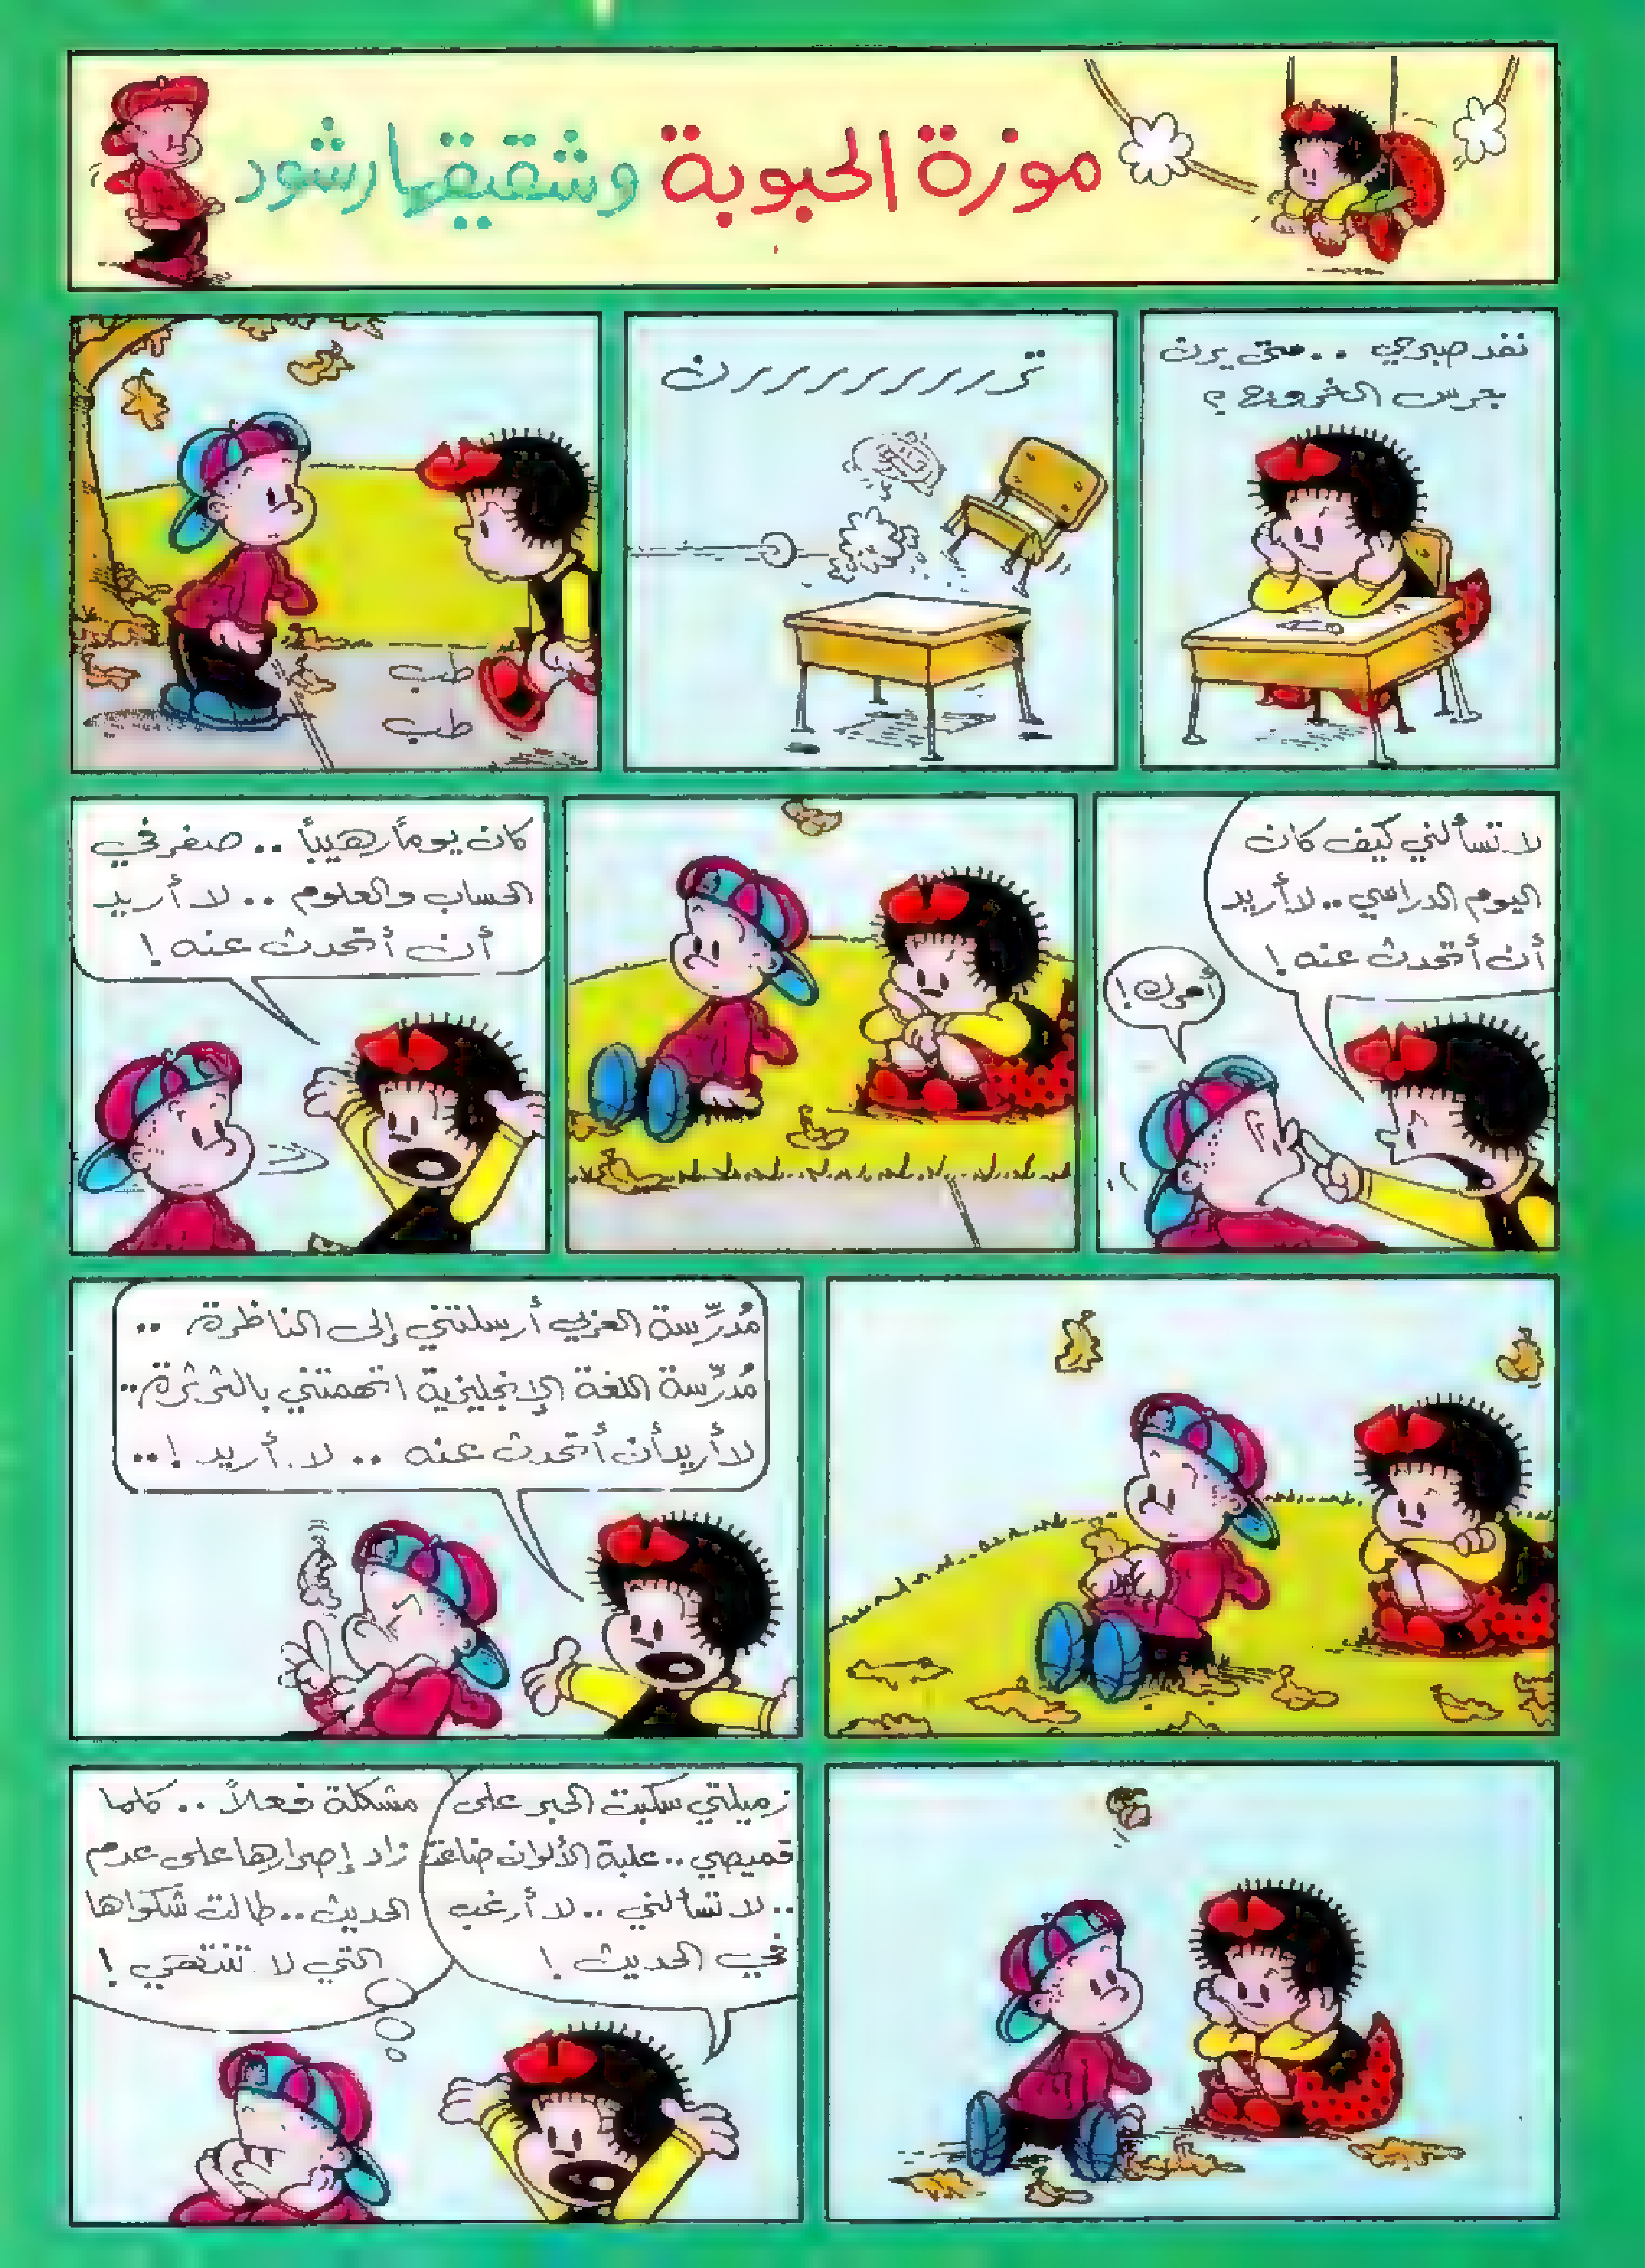 موزة الحبوبة وشقيقها رشود
نفد صبري .. متى يرن
جرس الخروج ؟
تررررررررررن
طب
طب
لا تسألني كيف كان
اليوم الدراسي .. لا أريد
أن أتحدث عنه !
أمرك !
كان يوماً رهيباً .. صفر في
الحساب والعلوم .. لا أريد
أن أتحدث عنه !
مُدرِّسة العربي أرسلتني إلى الناظرة ..
مُدرِّسة اللغة الإنجليزية اتهمتني بالثرثرة ..
لا أريد أن أتحدث عنه .. لا أريد ! ..
زميلتي سكبت الحبر على
قميصي .. علبة الألوان ضاعت
.. لا تسألني .. لا أرغب
في الحديث !
مشكلة فعلاً .. كلما
زاد إصرارها على عدم
الحديث .. طالت شكواها
التي لا تنتهي !